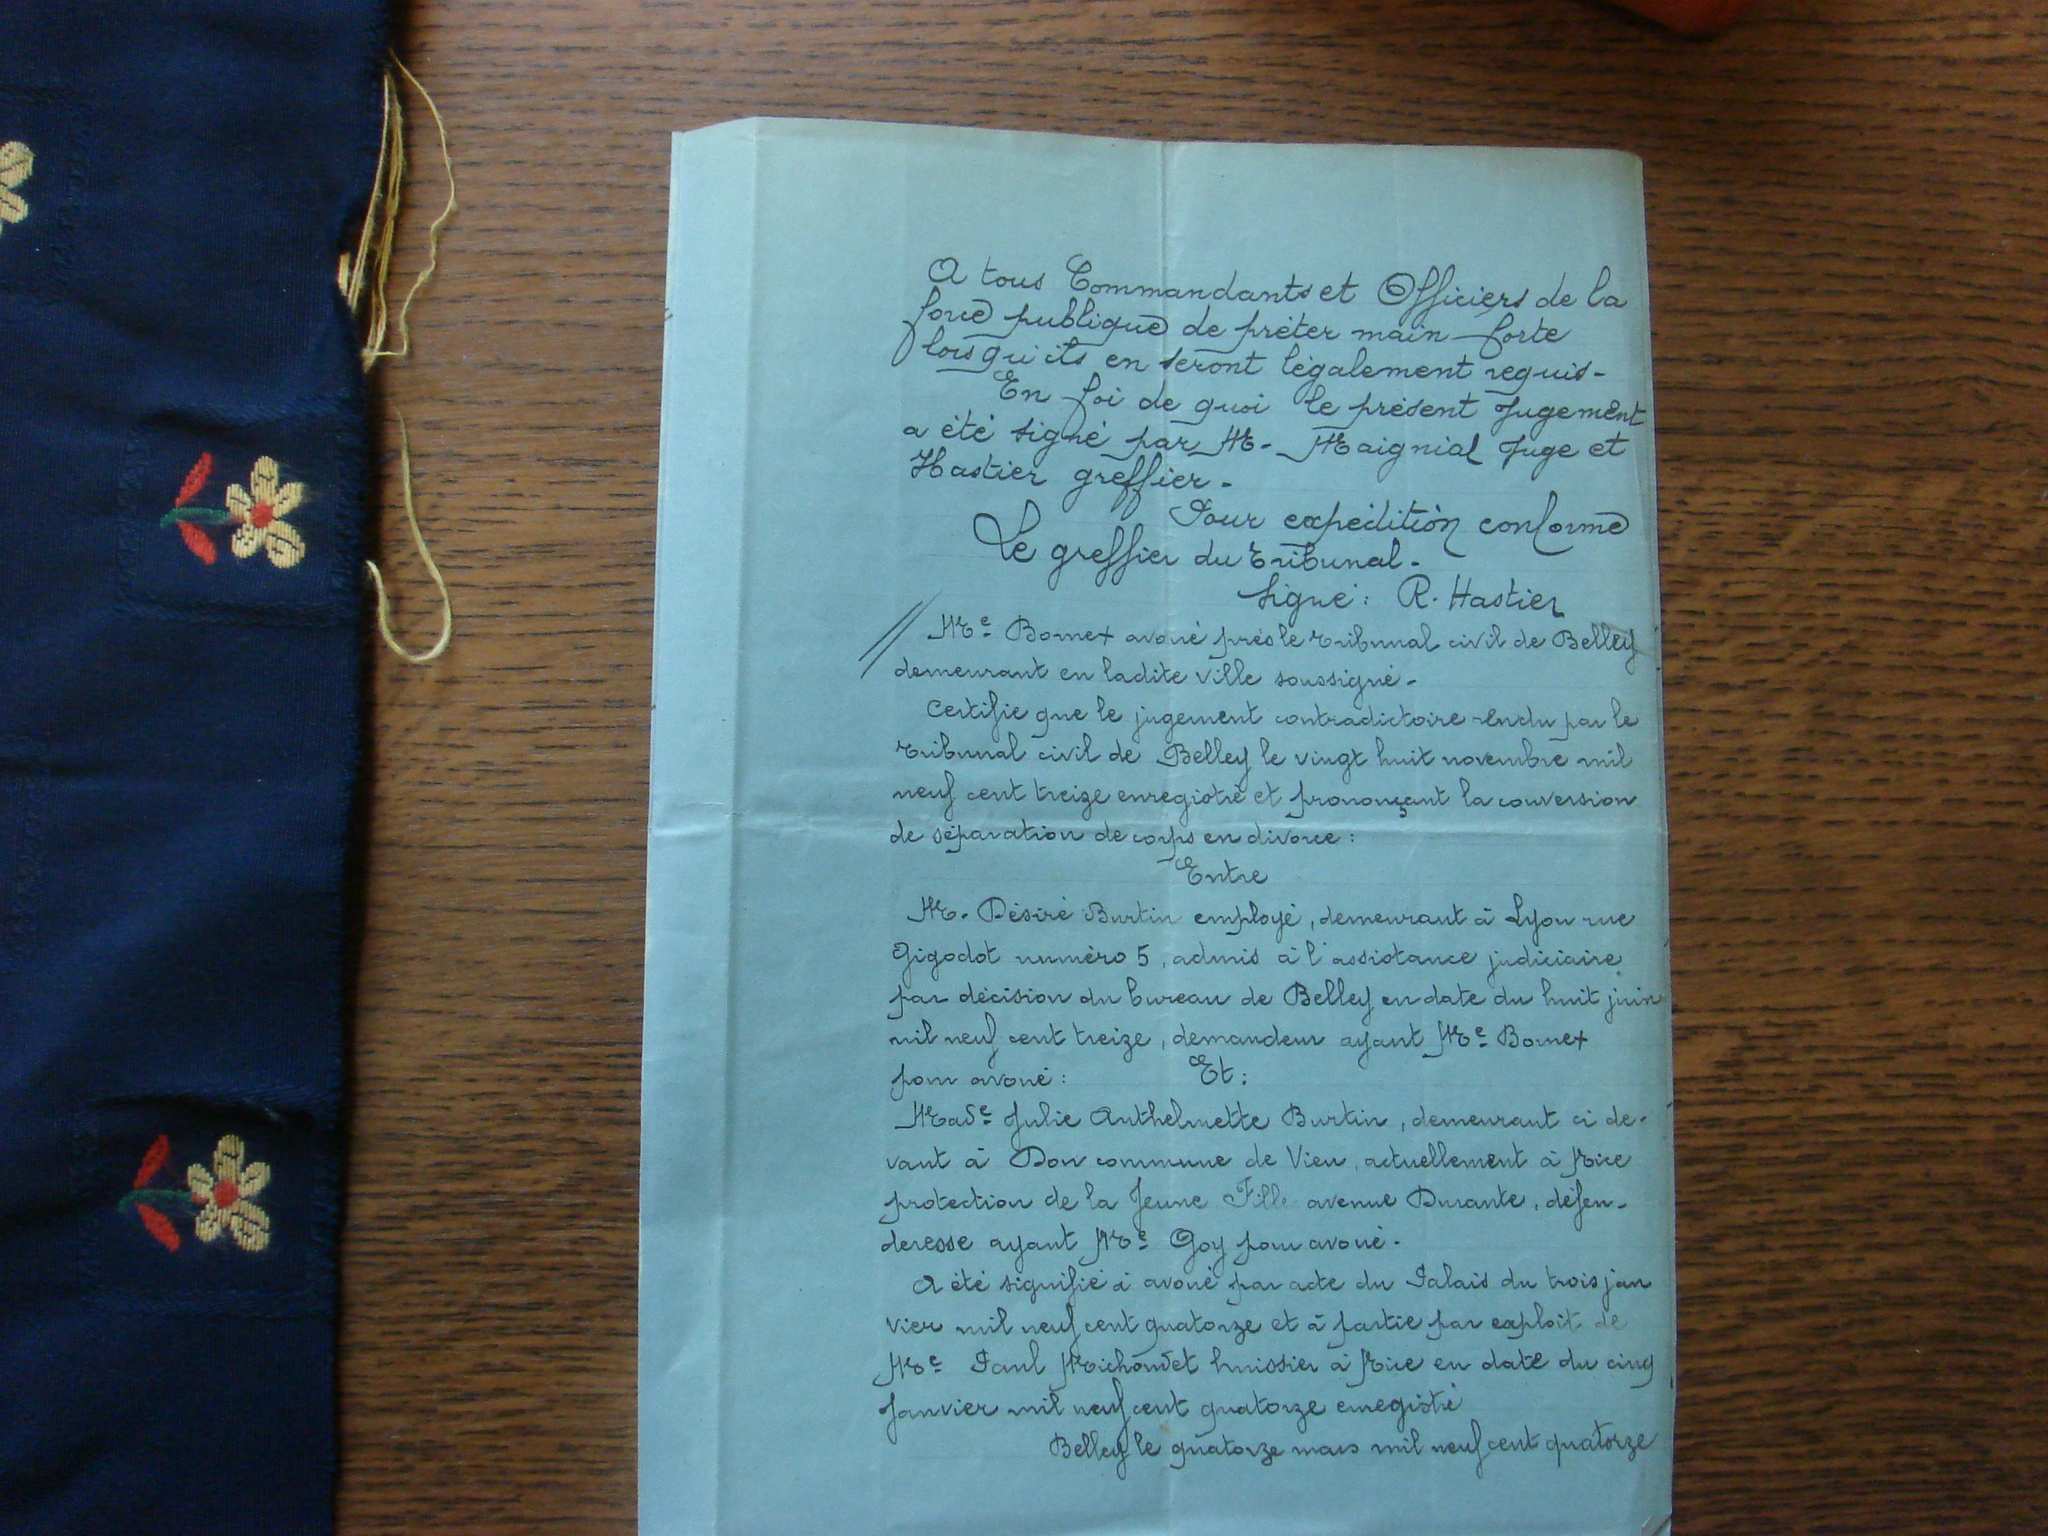 A tous Commandants et Officiers de la
force publique de prêter main-forte
lorsqu'ils en seront légalement requis-
En foi de quoi le présent Jugement
a été signé par M. Maignial Juge et
Hastier greffier.
Pour expédition conforme
Le greffier du Tribunal.
Signé: R. Hastier
Me Bornet avoué près le Tribunal civil de Belley
demeurant en ladite ville soussigné.
Certifie que le jugement contradictoire rendu par le
Tribunal civil de Belley le vingt huit novembre mil
neuf cent treize enregistré et prononçant la conversion
de séparation de corps en divorce:
Entre
M. Désiré Burtin employé, demeurant à Lyon rue
Gigodot numéro 5, admis à l'assistance judiciaire
par décision du bureau de Belley en date du huit juin
mil neuf cent treize, demandeur ayant Me Bornet
pour avoué: Et:
Made Julie Anthelmette Burtin, demeurant ci de-
vant à Don commune de Vieu, actuellement à Nice
protection de la Jeune Fille avenue Durante, défen-
deresse ayant Me Goy pour avoué.
A été signifié à avoué par acte du Palais du trois jan
vier mil neuf cent quatorze et à partie par exploit de
Me Paul Michaudet huissier à Nice en date du cinq
Janvier mil neuf cent quatorze enregistré
Belley le quatorze mars mil neuf cent quatorze